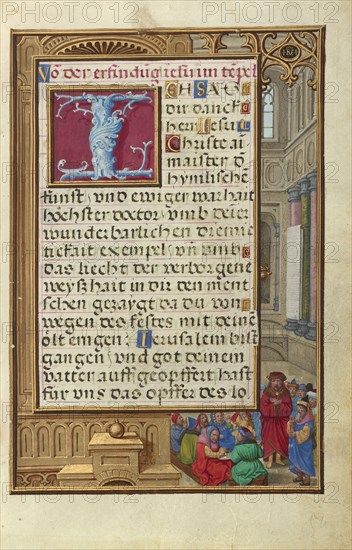 Võ der erfindūg iesu im tẽpel
ICH SAG
dir danck
herr Iesu
Christe ai
maister d
hymlischen
kunst, vnd ewiger warhait
höchster doctor, vmb deiner
wunderbarlichen diemie
tickait exempel, vñ vmb
das liecht der verborgene
weyßhait in dir den ment
schen geraygt da du von
wegen des festes mit deinē
ölt
gen Ierusalem bist
gangen, vnd got deinem
vatter auff geopffert hast
für vns das opffer des lo